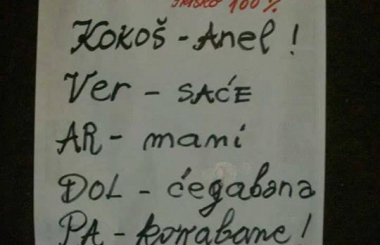 100%
KOKOŠ - Anel !
Ver - SAĆE
AR - mani
DOL - ćegabana
PA - korrabane !